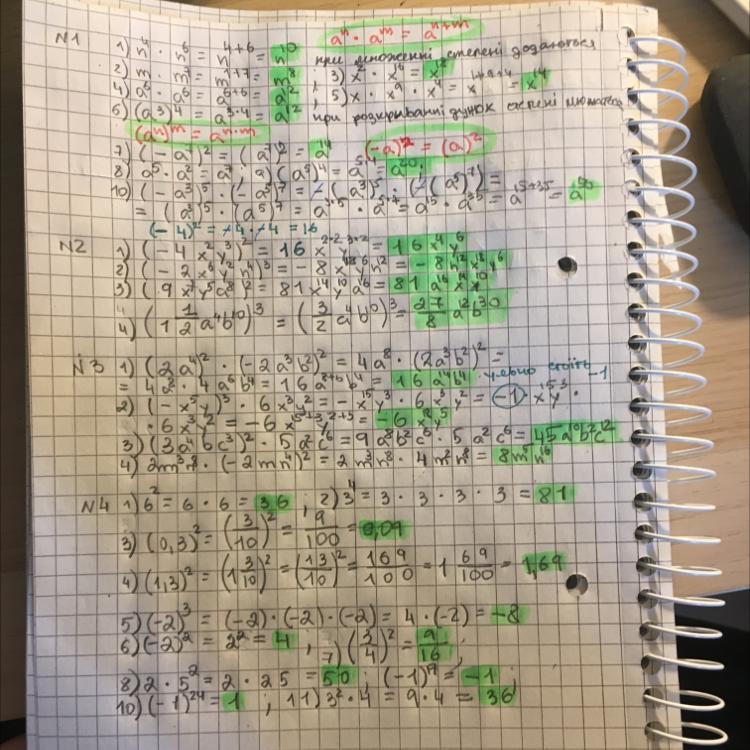 aⁿ · aᵐ = aⁿ⁺ᵐ
N1 1) n⁴ · n⁶ = n⁴⁺⁶ = n¹⁰ при множенні степені додаються
2) m · m⁷ = m¹⁺⁷ = m⁸ ; 3) x² · x¹⁶ = x¹⁸
4) a⁶ · a⁶ = a⁶⁺⁶ = a¹² , 5) x · x⁹ · x⁴ = x¹⁺⁹⁺⁴ = x¹⁴
6) (a³)⁴ = a³·⁴ = a¹² при розкриванні дужок степені множаться
(aⁿ)ᵐ = aⁿ·ᵐ (-a)² = (a)²
7) (-a⁷)² = (a⁷)² = a¹⁴
8) a⁵ · a² = a⁷ ; 9) (a⁵)⁴ = a⁵·⁴ = a²⁰ ;
10) (-a³)⁵ · (-a⁵)⁷ = -(a³)⁵ · (-(a⁵)⁷) =
= (a³)⁵ · (a⁵)⁷ = a³·⁵ · a⁵·⁷ = a¹⁵ · a³⁵ = a¹⁵⁺³⁵ = a⁵⁰
(-4)² = -4 · -4 = 16
N2 1) (-4x²y³)² = 16x²·²y³·² = 16x⁴y⁶
2) (-2x⁶y²n⁴)³ = -8x¹⁸y⁶n¹² = -8n¹²x¹⁸y⁶
3) (9x⁷y⁵a⁸)² = 81x¹⁴y¹⁰a¹⁶ = 81a¹⁶x¹⁴y¹⁰
4) (1 1/2 a⁴b¹⁰)³ = (3/2 a⁴b¹⁰)³ = 27/8 a¹²b³⁰
N3 1) (2a⁴)² · (-2a³b²)² = 4a⁸ · (2a³b²)² =
= 4a⁸ · 4a⁶b⁴ = 16a⁸⁺⁶b⁴ = 16a¹⁴b⁴ стоїть -1
2) (-x⁵y)³ · 6x³y² = -x¹⁵y³ · 6x³y² = (-1) x¹⁵y³ ·
· 6x³y² = -6x¹⁵⁺³y²⁺³ = -6x¹⁸y⁵
3) (3a⁴bc³)² · 5a²c⁶ = 9a⁸b²c⁶ · 5a²c⁶ = 45a¹⁰b²c¹²
4) 2m³n⁸ · (-2mn⁴)² = 2m³n⁸ · 4m²n⁸ = 8m⁵n¹⁶
N4 1) 6² = 6 · 6 = 36 ; 2) 3⁴ = 3 · 3 · 3 · 3 = 81
3) (0,3)² = (3/10)² = 9/100 = 0,09
4) (1,3)² = (1 3/10)² = (13/10)² = 169/100 = 1 69/100 = 1,69
5) (-2)³ = (-2) · (-2) · (-2) = 4 · (-2) = -8
6) (-2)² = 2² = 4 ; 7) (3/4)² = 9/16 ;
8) 2 · 5² = 2 · 25 = 50 ; (-1)⁹ = -1 ;
10) (-1)²⁴ = 1 ; 11) 3² · 4 = 9 · 4 = 36